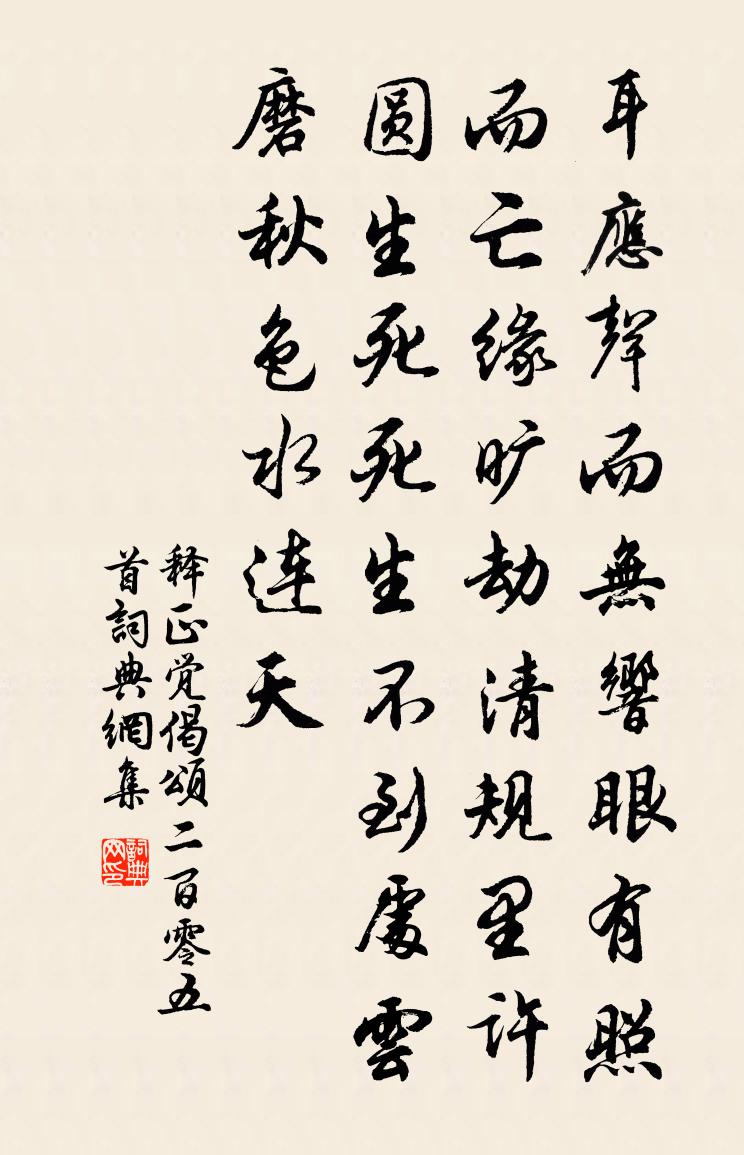 耳應聲而無響眼有照
而亡缘旷劫清规里许
圆生死死生不到處雲
磨秋色水连天
释正觉偈頌二百零五
首詞典網集
詞典網印